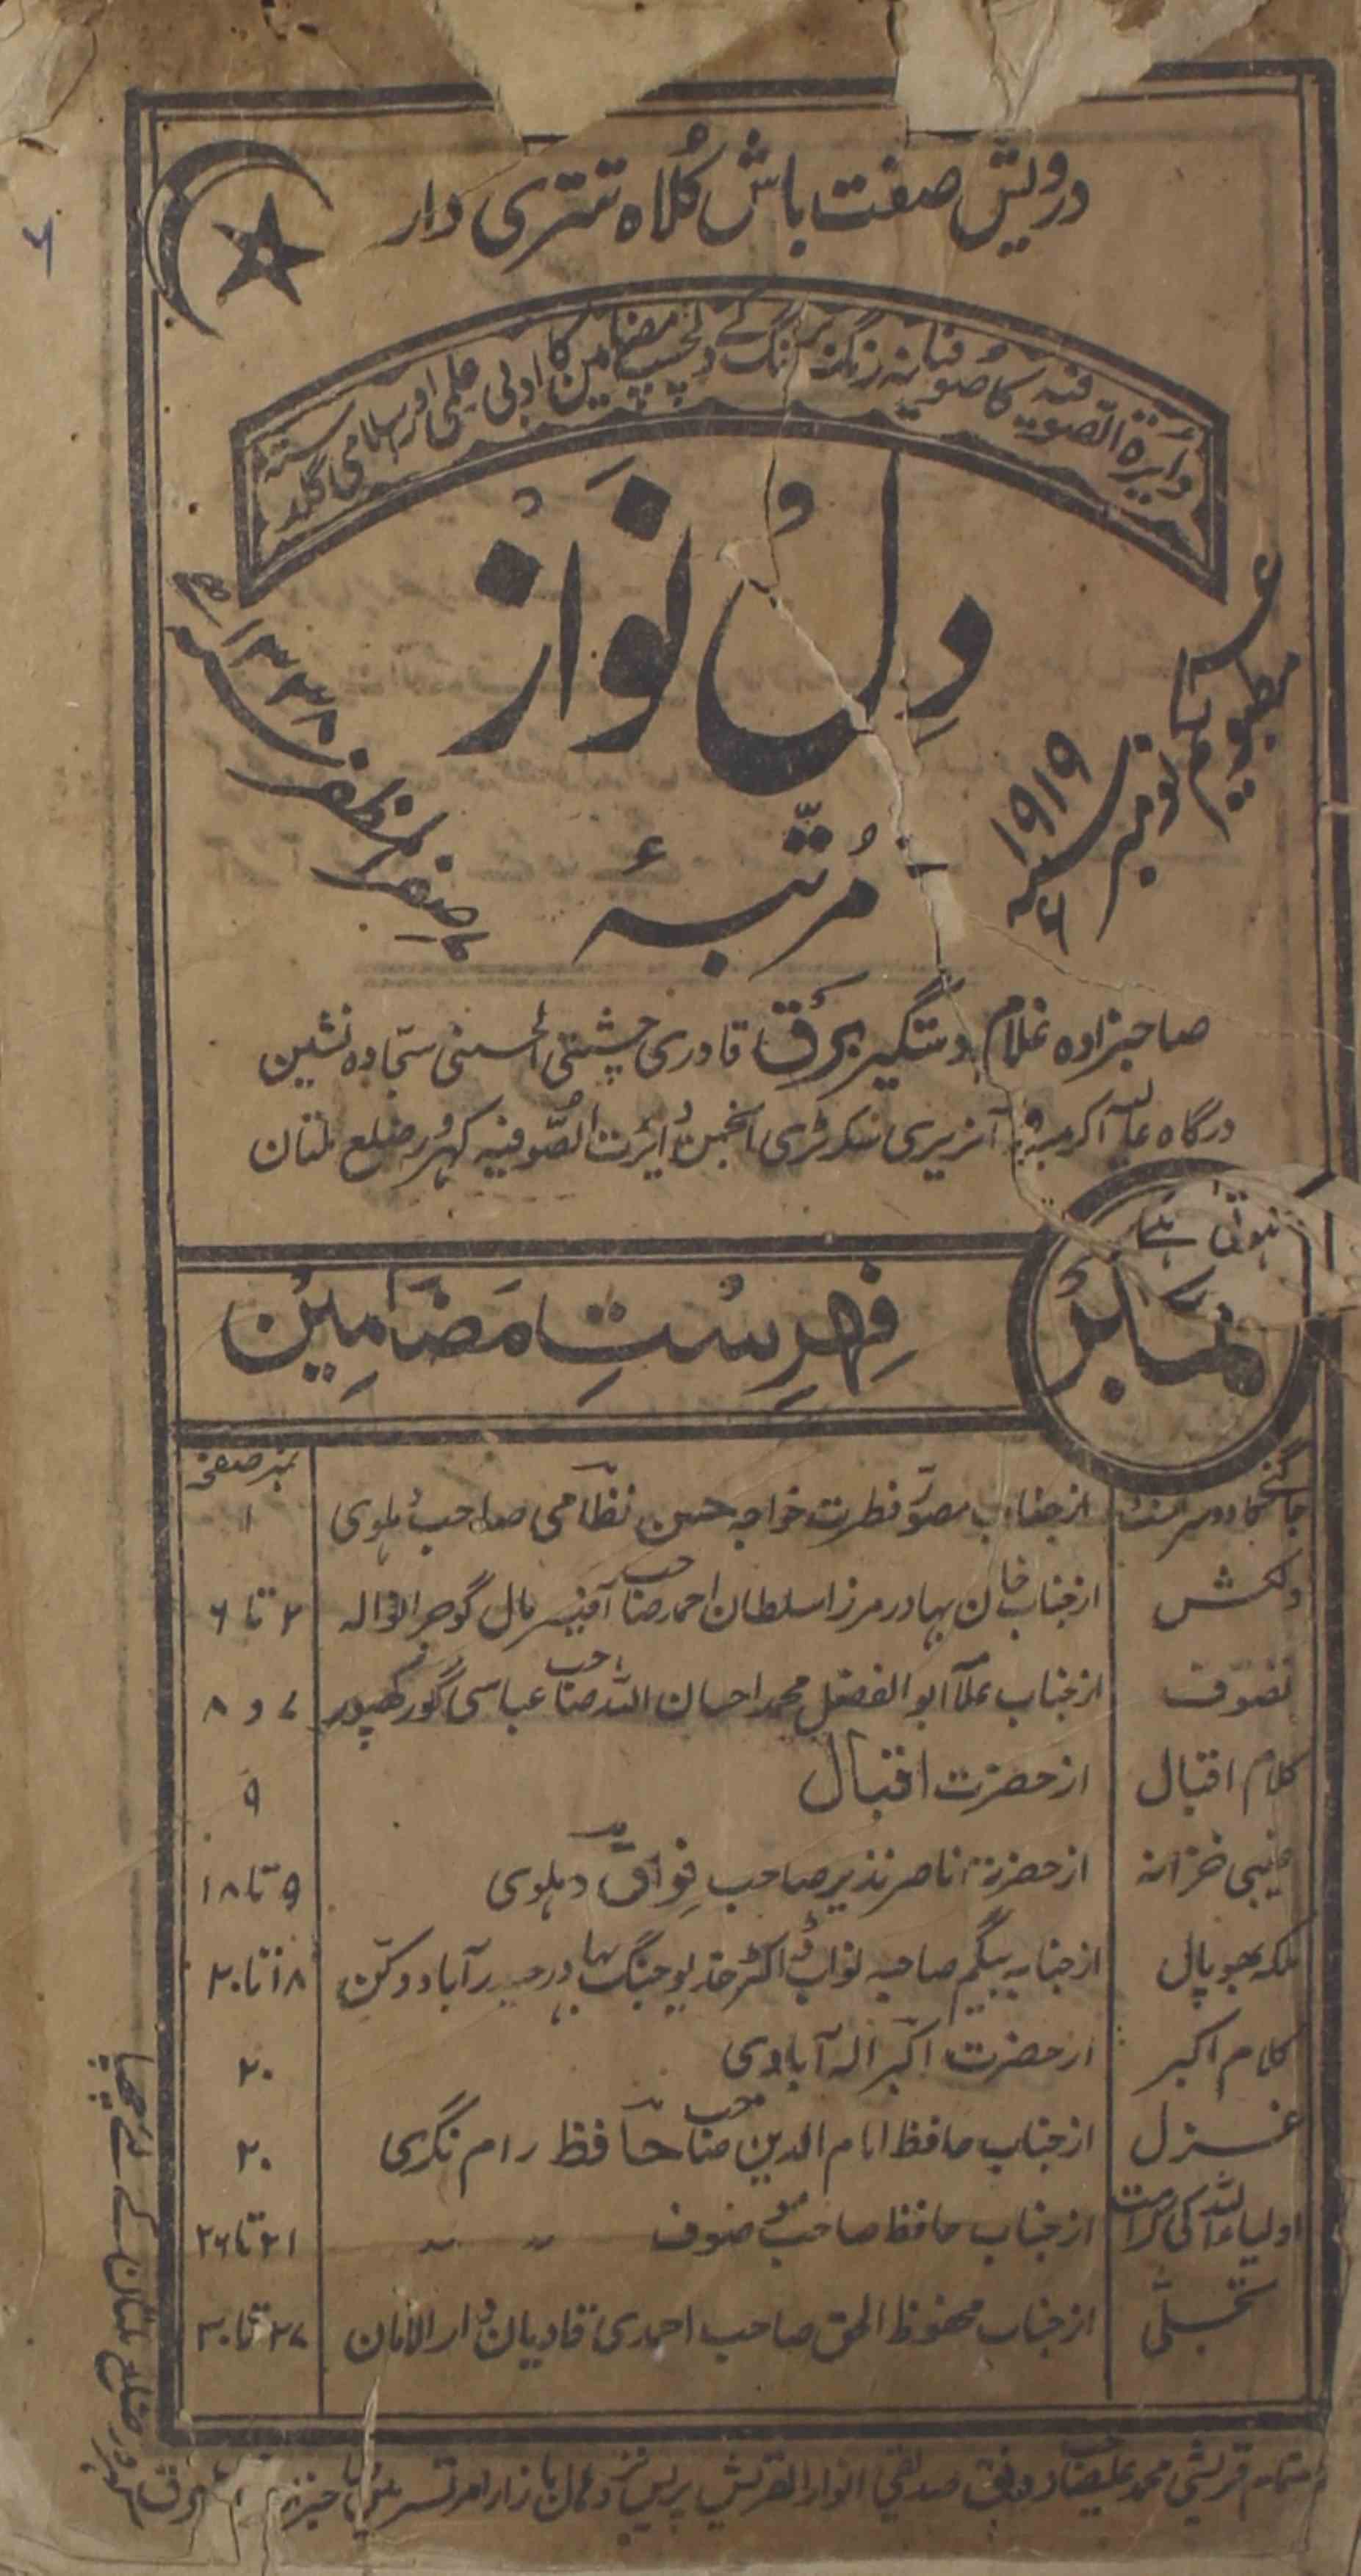 درویش صفت باش کلاہ تتری دار
دائرۃ الصوفیہ کا صوفیانہ رنگ برنگ کے دلچسپ مضامین کا ادبی علمی اور اسلامی گلدستہ
دل نواز
مطبوعہ یکم نومبر سنہ ۱۹۱۹ء
صفر المظفر سنہ ۱۳۳۸ھ
مرتبہٴ
صاحبزادہ غلام دستگیر برق قادری چشتی الحسنی سجادہ نشین
درگاہ عالیہ اکرمیہ و آنریری سکرٹری انجمن دائرۃ الصوفیہ کہروڑ ضلع ملتان
ہوتی ہے
نمبر
فہرست مضامین
نمبر صفحہ
کا دوسرا از جناب مصور فطرت خواجہ حسن نظامی صاحب دہلوی ۱
دلکش از جناب خان بہادر مرزا سلطان احمد صاحب آفیسر مال گوجرانوالہ ۲ تا ۶
تصوف از جناب علامہ ابو الفضل محمد احسان اللہ صاحب عباسی گورکھپور ۷ و ۸
کلام اقبال از حضرت اقبال ۹
غیبی خزانہ از حضرت ناصر نذیر صاحب فراق دہلوی ۹ تا ۱۸
ملکہ بھوپال از جنابہ بیگم صاحبہ نواب ڈاکٹر خدیو جنگ بہادر حیدرآباد دکن ۱۸ تا ۲۰
کلام اکبر از حضرت اکبر الہ آبادی ۲۰
غزل از جناب حافظ امام الدین صاحب حافظ رام نگری ۲۰
اولیاء اللہ کی کرامت از جناب حافظ صاحب موصوف ۲۱ تا ۲۶
تجلی از جناب محفوظ الحق صاحب احمدی قادیان دار الامان ۲۷ تا ۳۰
قریشی محمد علی صاحب رونق صدیقی انوار القریش پریس بازار امرتسر
ضلع ملتان کے لئے چھاپا